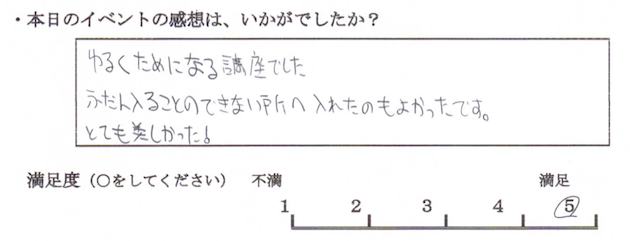 ・本日のイベントの感想は、いかがでしたか？
ゆるくためになる講座でした
ふだん入ることのできない所へ入れたのもよかったです。
とても美しかった！
満足度（○をしてください） 不満 満足
1 2 3 4 5